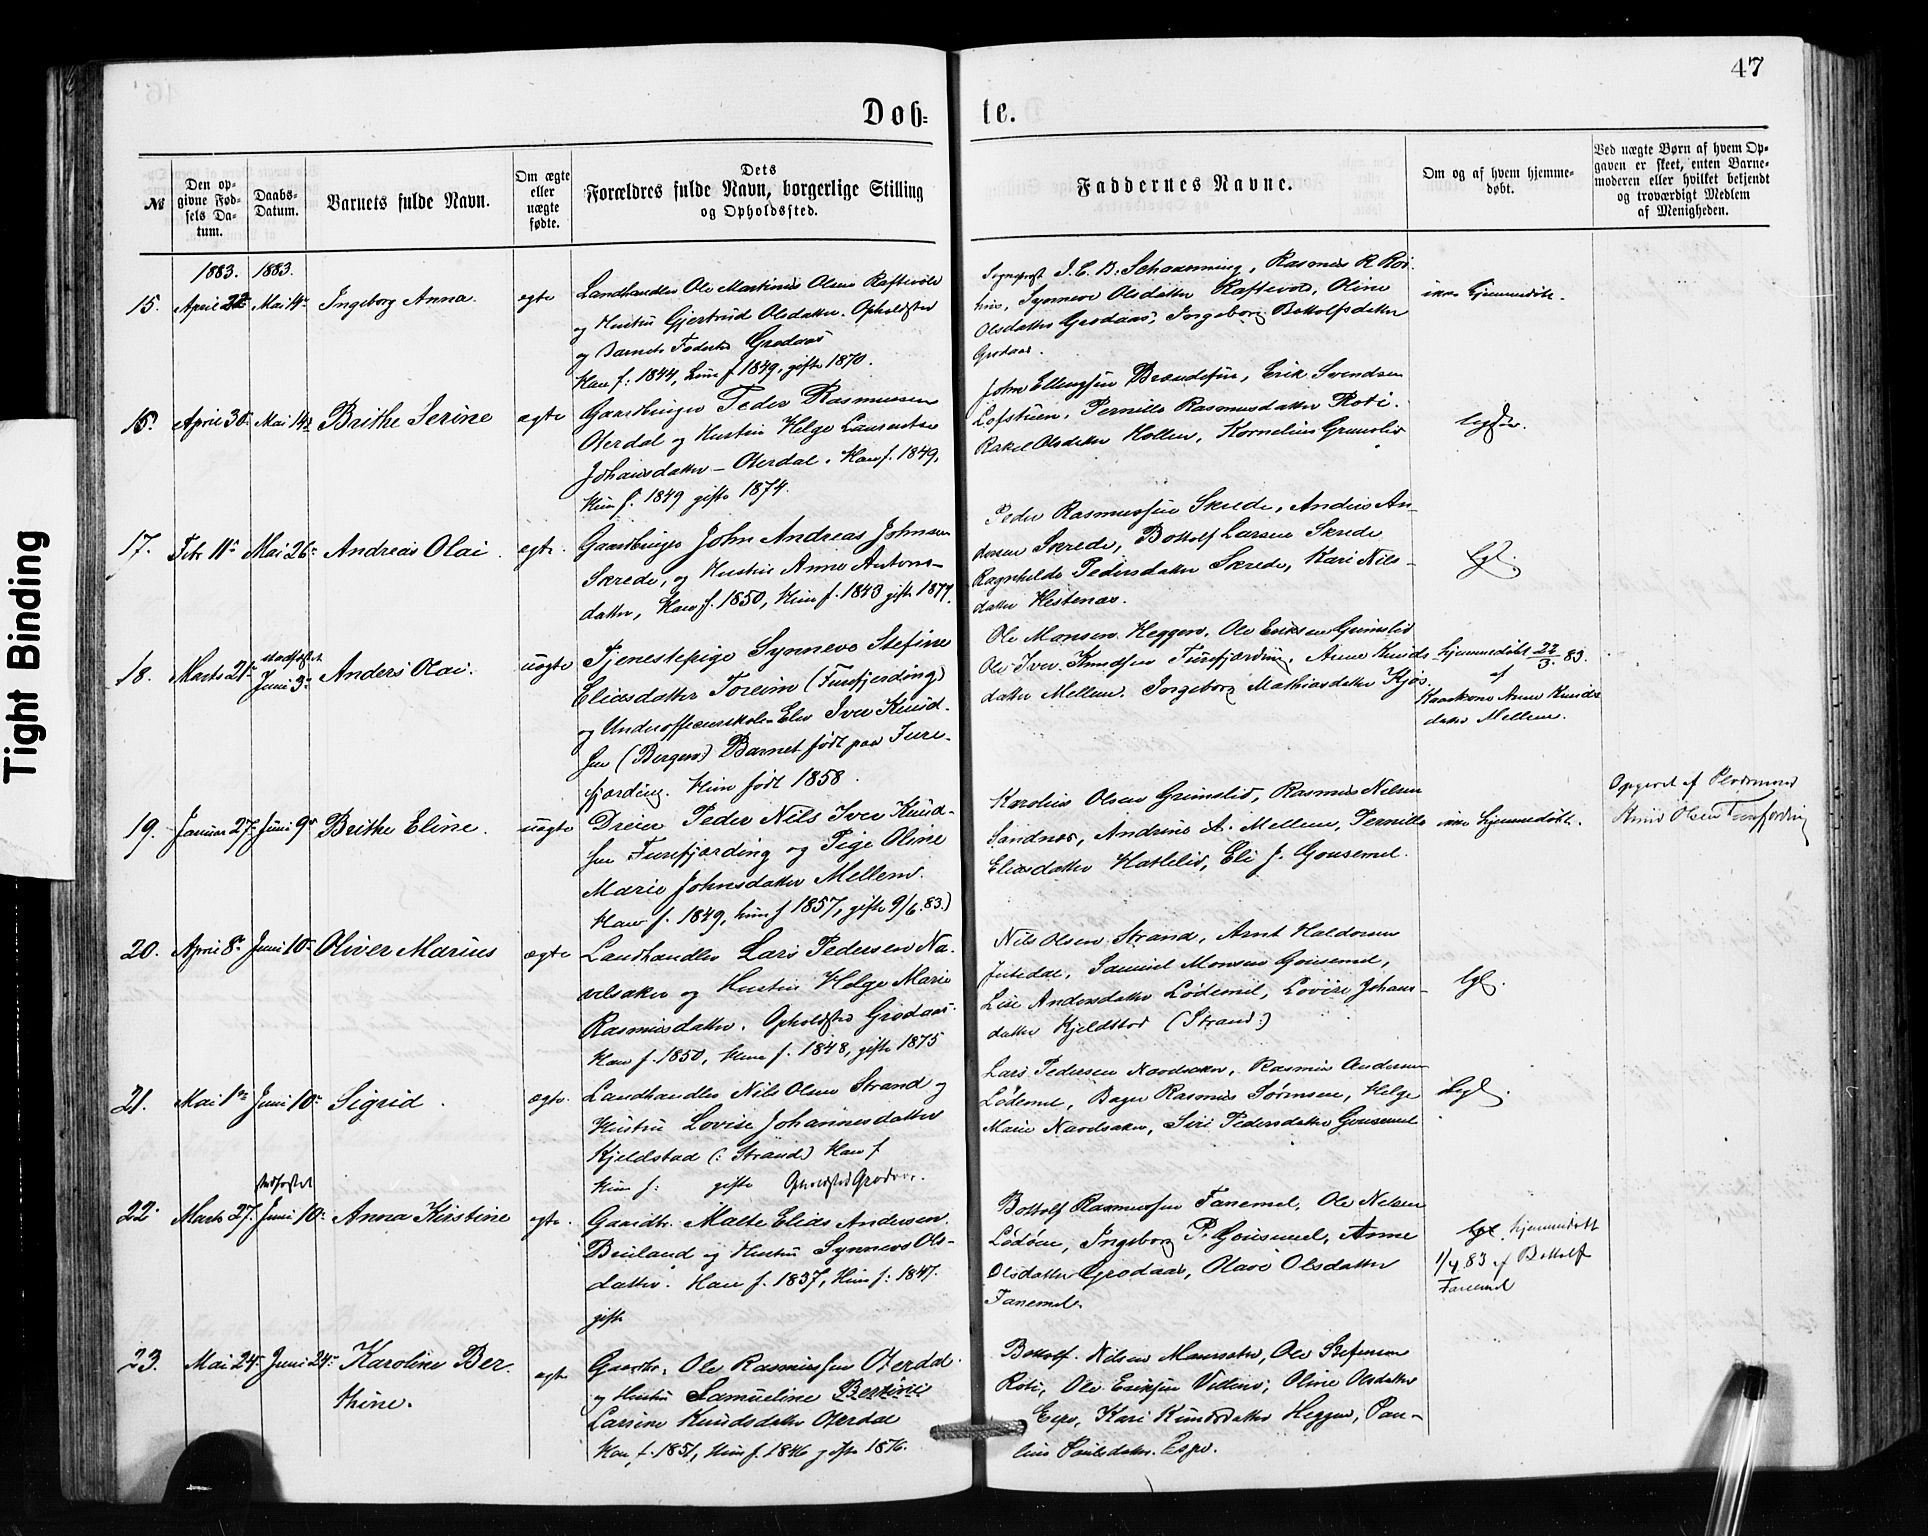 47
Døb=
te.
№
Den op-
givne Fød-
sels Da-
tum.
Daabs-
Datum.
Barnets fulde Navn.
Om ægte
eller
nægte
fødte.
Dets
Forældres fulde Navn, borgerlige Stilling
og Opholdssted.
Faddernes Navne.
Om og af hvem hjemme-
døbt.
Ved nægte Børn af hvem Op-
gaven er skeet, enten Barne-
moderen eller hvilket bekjendt
og troværdigt Medlem
af Menigheden.
1883. 1883.
15. April 22 Mai 14 Ingeborg Anna. egte
Landhandler Ole Martinus Olsen Raftevold
og Hustru Gjertrud Olsdatter. Opholdsted
og Barnets Fødested Grodaas
Han f. 1844, hun f 1849, gifte 1870.
Sogneprest J. C. B. Schaanning, Rasmus R.
Synneve Olsdatter Raftevold, Oline
Olsdatter Grodaas, Ingeborg Bottolfsdatter
Grodaas.
ikke hjemmedøbt.
16. April 30 Mai 14 Brithe Serine ægte
Gaardbruger Peder Rasmussen
Oterdal og Hustru Helge Laurentse
Johansdatter - Oterdal. Han f. 1849,
Hun f. 1849 gifte 1874.
John Ellingsen Erik Svendsen
Pernille Rasmusdatter Roti.
Rakel Olsdatter Hollen, Kornelius Grimslid
17. Febr 11 Mai 26 Andreas Olai. egte.
Gaardbruger John Andreas Johnsen
Skrede, og Hustru Anne Antons-
datter, Han f. 1850, Hun f. 1843 gifte 1877.
Peder Rasmussen Skrede, Anders An-
dersen Skrede, Bottolf Larsen Skrede
Ragnhilde Pedersdatter Skrede, Kari Nils-
datter Hestenæs.
Lgl.
18. Marts 21 stadfæstet
Juni 3 Anders Olai. uægte
Tjenestepige Synneve Stefine
Eliasdatter Toreim (Furefjording)
og Underofficerskole-Elev Iver Knud-
sen (Bergen) Barnet født paa Fure-
fjording. Hun født 1858.
Ole Monsen Heggen, Ole Eriksen Grimslid
Ole Iver Knudsen Furefjording, Anne Knuds
datter Mellem. Ingeborg Mathiasdatter Kjøs.
hjemmedøbt 22/3 83.
af
Anne Knuds
datter Mellem.
19. Januar 27 Juni 9 Brithe Eline. uægte
Dreier Peder Nils Iver Knud-
sen Furefjording og Pige Oline
Marie Johnsdatter Mellem.
Han f. 1849, hun f 1857, gifte 9/6 83.)
Karolius Olsen Grimslid, Rasmus Nilsen
Sandnes, Andrine A. Mellem, Pernille
Eliasdatter Hatlelid, Eli J. Gousemel.
ikke hjemmedøbt.
Opgivet af
Knud Olsen Furefjording
20. April 8 Juni 10 Oliver Marius ægte
Landhandler Lars Pedersen Na-
velsaker og Hustru Helge Marie
Rasmusdatter. Opholdsted Grodaas.
Han f. 1850, Hun f. 1848, gifte 1875
Nils Olsen Strand, Arnt Haldorsen
Samuel Monsen Gousemel,
Lise Andersdatter Lødemel, Lovise Johans-
datter Kjeldstad (Strand)
Lgl.
21. Mai 1 Juni 10 Sigrid. ægte.
Landhandler Nils Olsen Strand og
Hustru Lovise Johannesdatter
Kjeldstad (: Strand) Han f
Hun f: gifte Opholdsted Grodaas.
Lars Pedersen Rasmus Andersen
Lødemel, Bager Rasmus Helge
Marie Siri Pedersdatter Gousemel
Lgl.
22. Marts 27. stadfæstet
Juni 10 Anna Kirstine egte.
Gaardbr. Malte Elias Andersen
og Hustru Synneve Ols-
datter. Han f. 1837, Hun f: 1847.
gifte
Bottolf Rasmussen Tanemel, Ole Nilsen
Ingeborg P. Gousemel, Anne
Olsdatter Grodaas, Olave Olsdatter
Tanemel.
Lgl. hjemmedøbt
1/4 83 af Bottolf
Tanemel
23. Mai 24 Juni 24 Karoline Ber-
thine. ægte
Gaardbr. Ole Rasmussen Oterdal.
og Hustru Samueline Bertine
Larsine Knudsdatter Oterdal
Han f. 1851, Hun f. 1846 gifte 1876.
Bottolf Nilsen Ole Stefensen
Roti, Ole Eriksen Oline Olsdatter
Espe, Kari Knudsdatter Heggen, Pau-
line Paulsdatter Espe.
Tight Binding